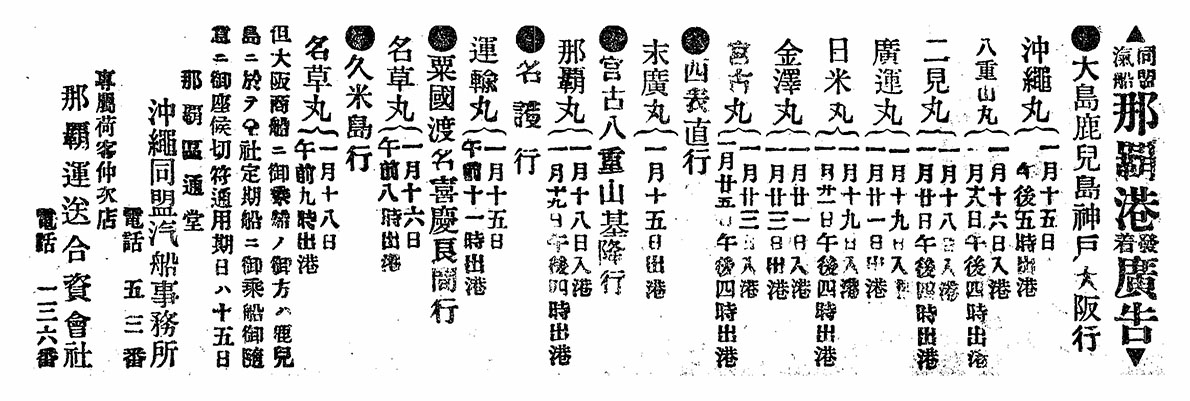 ▲同盟汽船那覇港發着廣告▼
●大島鹿兒島神戸大阪行
沖繩丸 一月十五日午後五時出港
八重山丸 一月十六日入港
二見丸 一月十八日入港
一月廿日午後四時出港
廣運丸 一月十九日入港
一月廿一日出港
日米丸 一月十九日入港
金澤丸 一月廿一日入港
一月廿三日出港
宮古丸 一月廿三日入港
一月廿五日午後四時出港
●西表直行
末廣丸 一月十五日出港
●宮古八重山基隆行
那覇丸 一月十八日入港
一月十九日午後四時出港
●名護行
運輸丸 一月十五日午前十一時出港
●粟國渡名喜慶良間行
名草丸 一月十六日午前八時出港
●久米島行
名草丸 一月十八日午前九時出港
但大阪商船ニ御乘船ノ御方ハ鹿兒
島ニ於テ仝社定期船ニ御乘船御隨
意ニ御座候切符通用期日ハ十五日
那覇區通堂
沖繩同盟汽船事務所
電話 五三番
專屬荷客仲次店
那覇運送合資會社
電話 一三六番